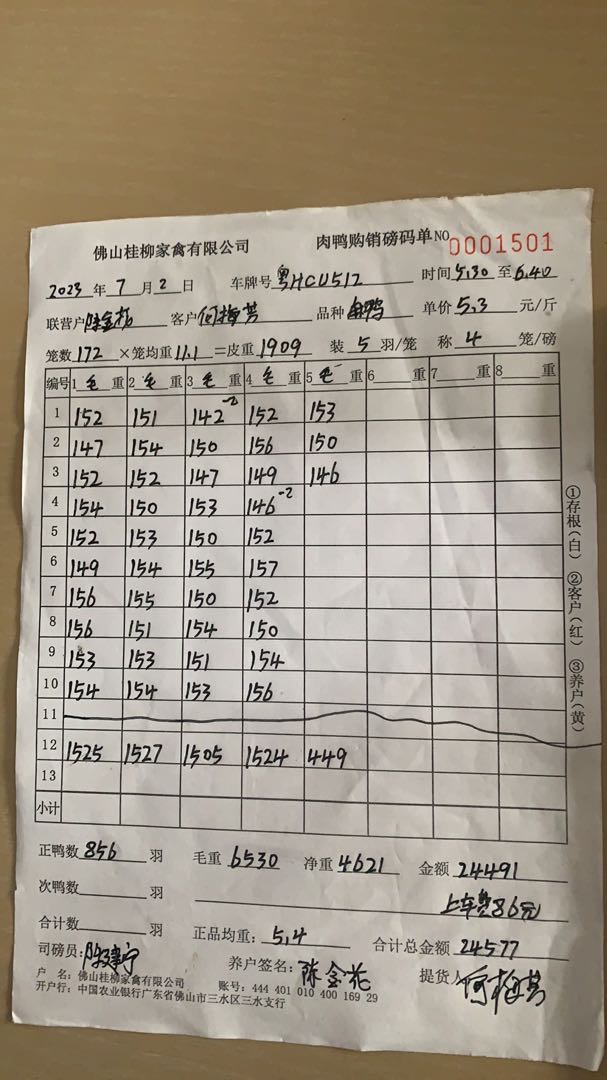 佛山桂柳家禽有限公司 肉鸭购销磅码单 NO 0001501
2023年7月2日 车牌号 粤HCU512 时间5.30至6.40
联营户 客户何梅芳 品种 鸭 单价5.3元/斤
笼数172×笼均重11.1=皮重1909 装5羽/笼 称4笼/磅
编号 1毛重 2毛重 3毛重 4毛重 5毛重 6重 7重 8重
1 152 151 142-2 152 153
2 147 154 150 156 150
3 152 152 147 149 146
4 154 150 153 146-2
5 152 153 150 152
6 149 154 155 157
7 156 155 150 152
8 156 151 154 150
9 153 153 151 154
10 154 154 153 156
11
12 1525 1527 1505 1524 449
13
小计
①存根(白) ②客户(红) ③养户(黄)
正鸭数856羽 毛重6530 净重4621 金额24491
次鸭数 羽 上车费86元
合计数 羽 正品均重:5,4 合计总金额24577
司磅员: 养户签名:陈金花 提货人 何梅芳
户 名:佛山桂柳家禽有限公司 账号:444 401 010 400 169 29
开户行:中国农业银行广东省佛山市三水区三水支行